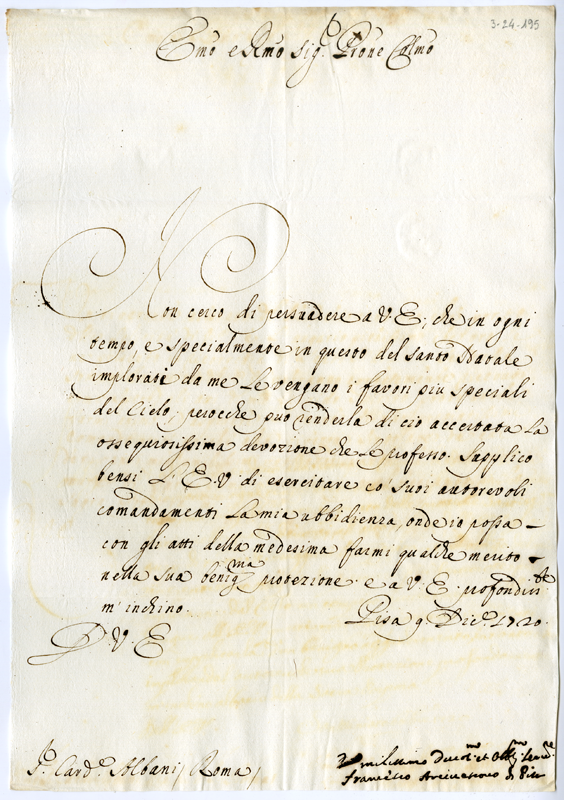 3-24-195
Emo e Rmo Sigr. Prone Colmo
Non cerco di persuadere a V. E., che in ogni
tempo, e specialmente in questo del Santo Natale
implorati da me Le vengano i favori più speciali
del Cielo; perocche può renderla di ciò accertata La
ossequiosissima devozione che Le professo. Supplico
bensi L'E. V. di esercitare co' suoi autorevoli
comandamenti La mia ubbidienza, onde io possa
con gli atti della medesima farmi qualche merito
nella sua benigma protezione. e a V. E. profondisste
m'inchino.
Pisa 9. Dice. 1720.
D. V. E
Sr. Carde. Albani / Roma /
Umilissimo Devotmo et Obb
Francesco Arcivescovo di Pisa